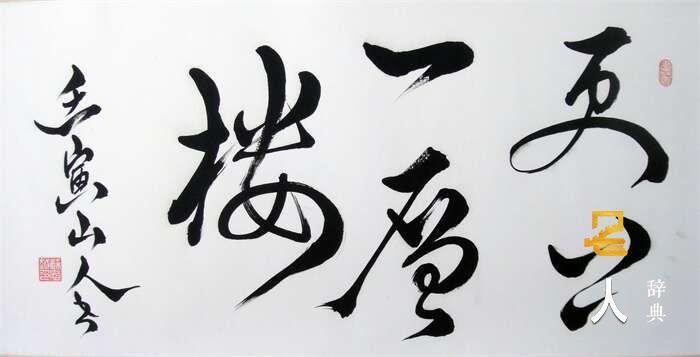 更上
一層
楼
壬寅山人书
名人辞典